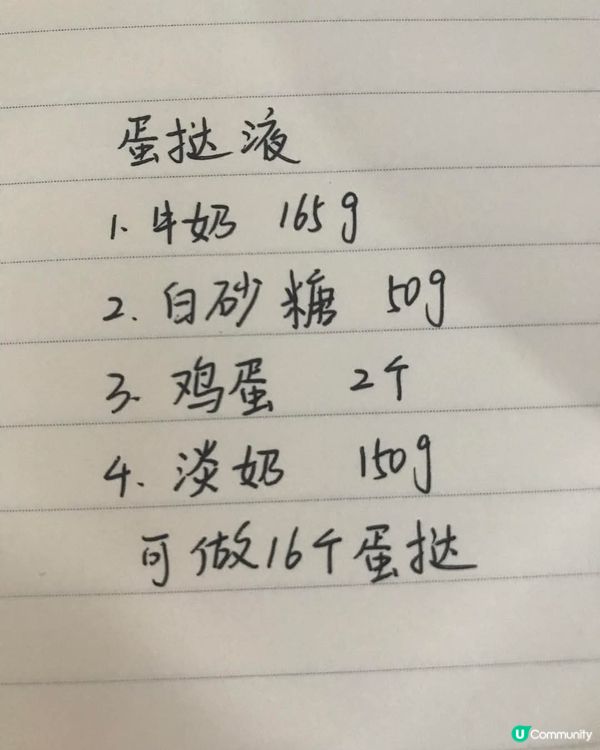 蛋挞液
1. 牛奶 165g
2. 白砂糖 50g
3. 鸡蛋 2个
4. 淡奶 150g
可做16个蛋挞
U Community